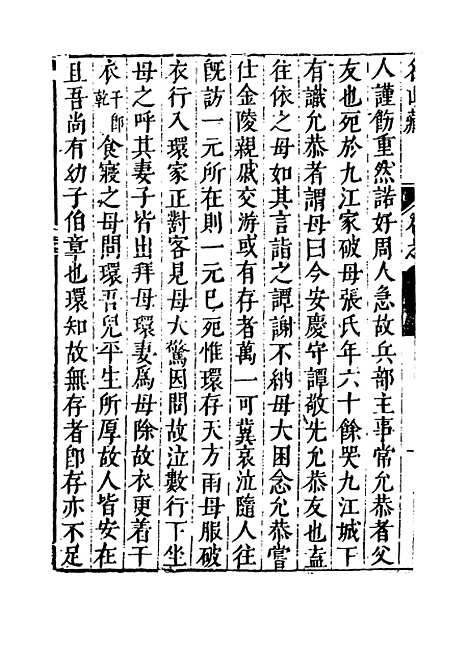 人謹飭重然諾好周人急故兵部主事常允恭者父
友也死於九江家破母張氏年六十餘哭九江城下
有識允恭者謂母曰今安慶守譚敬先允恭友也盍
往依之母如其言詣之譚謝不納母大困念允恭嘗
仕金陵親戚交游或有存者萬一可冀哀泣隨人往
旣訪一元所在則一元已死惟環存天方雨母服破
衣行入環家正對客見母大驚因問故泣數行下坐
母之呼其妻子皆出拜母環妻爲母除故衣更着干
衣干卽乾食寢之母問環吾兒平生所厚故人皆安在
且吾尚有幼子伯章也環知故無存者卽存亦不足